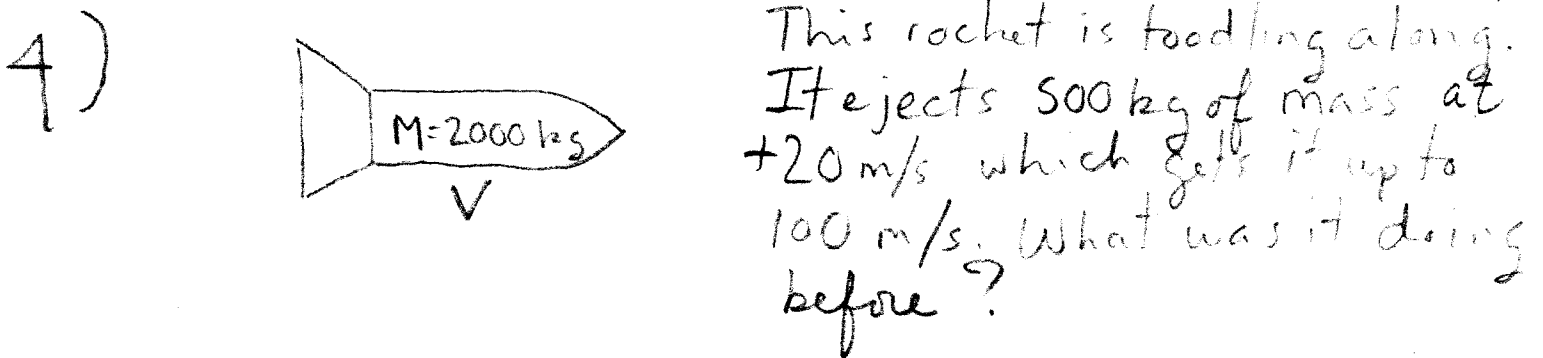 4)
M=2000 kg
V
This rocket is toodling along.
It ejects 500 kg of mass at
+20 m/s which gets it up to
100 m/s. What was it doing
before?